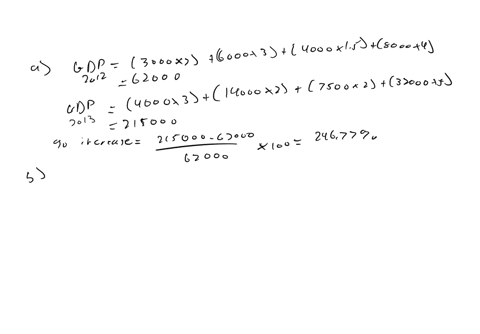 a) GDP 2012 = (3000×2) + (6000×3) + (4000×1.5) + (8000×4)
= 62000
GDP 2013 = (4000×3) + (14000×2) + (7500×2) + (32000×5)
= 215000
% increase = 215000-62000 / 62000 ×100 = 246.77%
b)